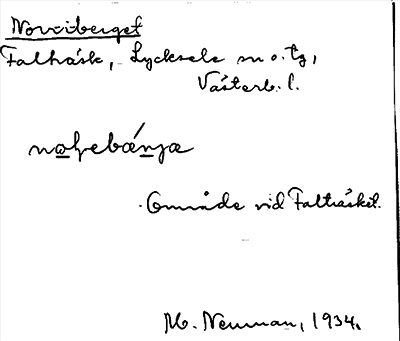 Norriberget
Falträsk, Lycksele sn o. tg,
Västerb. l.
Område vid Falträsket.
M. Neuman, 1934.